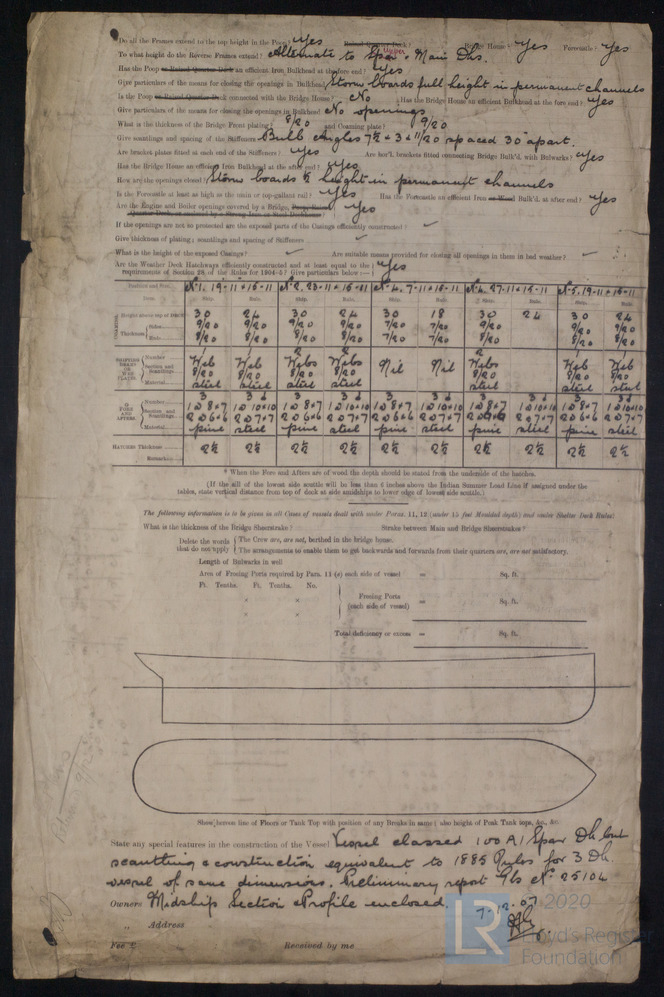 Do all the Frames extend to the top height in the Poop? Yes Raised Quarter Deck? Bridge House? Yes Forecastle? Yes
To what height do the Reverse Frames extend? Alternate to Spar & Main Dks. Upper
Has the Poop or Raised Quarter Deck an efficient Iron Bulkhead at the fore end? Yes
Give particulars of the means for closing the openings in Bulkhead Storm boards full height in permanent channels
Is the Poop or Raised Quarter Deck connected with the Bridge House? No Has the Bridge House an efficient Bulkhead at the fore end? Yes
Give particulars of means for closing the openings in Bulkhead No openings
What is the thickness of the Bridge Front plating? 8/20 and Coaming plate? 9/20
Give scantlings and spacing of the Stiffeners Bulb Angles 7½ × 3 × 11/20 spaced 30" apart.
Are bracket plates fitted at each end of the Stiffeners? Yes Are hor'l. brackets fitted connecting Bridge Bulk'd. with Bulwarks? Yes
Has the Bridge House an efficient Iron Bulkhead at the after end? Yes
How are the openings closed? Storm boards ½ height in permanent channels
Is the Forecastle at least as high as the main or top-gallant rail? Yes Has the Forecastle an efficient Iron or Wood Bulk'd. at after end? Yes
Are the Engine and Boiler openings covered by a Bridge, Poop, Raised Yes
Quarter Deck, or enclosed by a Strong Iron or Steel Deckhouse?
If the openings are not so protected are the exposed parts of the Casings efficiently constructed? ✓
Give thickness of plating; scantlings and spacing of Stiffeners ✓
What is the height of the exposed Casings? ✓ Are suitable means provided for closing all openings in them in bad weather? ✓
Are the Weather Deck Hatchways efficiently constructed and at least equal to the Yes
requirements of Section 28 of the Rules for 1904-5? Give particulars below :—
Position and Size. No 1. 19-11 × 16-11 No 2. 23-11 × 16-11 No 4. 7-11 × 16-11 No 4. 27-11 × 16-11 No 5. 19-11 × 16-11
Item. Ship. Rule. Ship. Rule. Ship. Rule. Ship. Rule. Ship. Rule.
Height above top of Deck 30 24 30 24 30 18 30 24 30 24
Thickness Sides 9/20 9/20 9/20 9/20 7/20 7/20 9/20 9/20 9/20
Ends 8/20 8/20 8/20 8/20 7/20 7/20 8/20 8/20 8/20
SHIFTING BEAMS OR WEB PLATES. Number 1 1 2 2 2 1 1
Section and Scantlings Web Web Webs Webs Nil Nil Webs Web Web
8/20 8/20 8/20 8/20 8/20 8/20 8/20
Material steel steel steel steel steel steel steel
FORE AND AFTERS. Number 3 3 3 3 3 3 3 3 3 3
Section and Scantlings 1 @ 8×7 1 @ 10×10 1 @ 8×7 1 @ 10×10 1 @ 8×7 1 @ 10×10 1 @ 8×7 1 @ 10×10 1 @ 8×7 1 @ 10×10
2 @ 6×6 2 @ 7×7 2 @ 6×6 2 @ 7×7 2 @ 6×6 2 @ 7×7 2 @ 6×6 2 @ 7×7 2 @ 6×6 2 @ 7×7
Material pine steel pine steel pine steel pine steel pine steel
HATCHES Thickness 2½ 2½ 2½ 2½ 2½ 2½ 2½ 2½ 2½ 2½
Remarks
* When the Fore and Afters are of wood the depth should be stated from the underside of the hatches.
(If the sill of the lowest side scuttle will be less than 6 inches above the Indian Summer Load Line if assigned under the
tables, state vertical distance from top of deck at side amidships to lower edge of lowest side scuttle.)
The following information is to be given in all Cases of vessels dealt with under Paras. 11, 12 (under 15 feet Moulded depth) and under Shelter Deck Rules:
What is the thickness of the Bridge Sheerstrake? Strake between Main and Bridge Sheerstrakes?
Delete the words that do not apply
The Crew are, are not, berthed in the bridge house.
The arrangements to enable them to get backwards and forwards from their quarters are, are not satisfactory.
Length of Bulwarks in well
Area of Freeing Ports required by Para. 11 (e) each side of vessel = Sq. ft.
Ft. Tenths. Ft. Tenths. No.
× ×
Freeing Ports (each side of vessel) = Sq. ft.
× ×
Total deficiency or excess = Sq. ft.
Show hereon line of Floors or Tank Top with position of any Breaks in same; also height of Peak Tank tops, &c., &c.
State any special features in the construction of the Vessel Vessel classed 100 A1 Spar Dk but
scantling & construction equivalent to 1885 Rules for 3 Dk
vessel of same dimensions. Preliminary report Gls No 25104
Owners Midship Section & Profile enclosed.
7-12-07
" Address
Fee £ Received by me
© 2020
LR
Lloyd's Register
Foundation